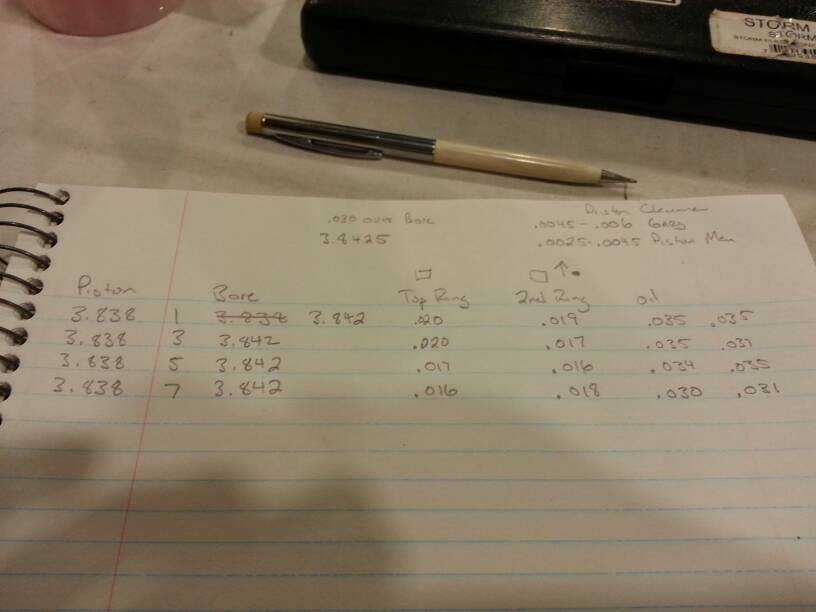 STORM
STORM
.030 over Bore
3.8425
Piston Clearance
.0045-.006
.0025-.0045 Piston Man
Piston Bore Top Ring 2nd Ring oil
3.838 1 3.838 3.842 .020 .019 .035 .035
3.838 3 3.842 .020 .017 .035
3.838 5 3.842 .017 .016 .034 .035
3.838 7 3.842 .016 .018 .030 .031